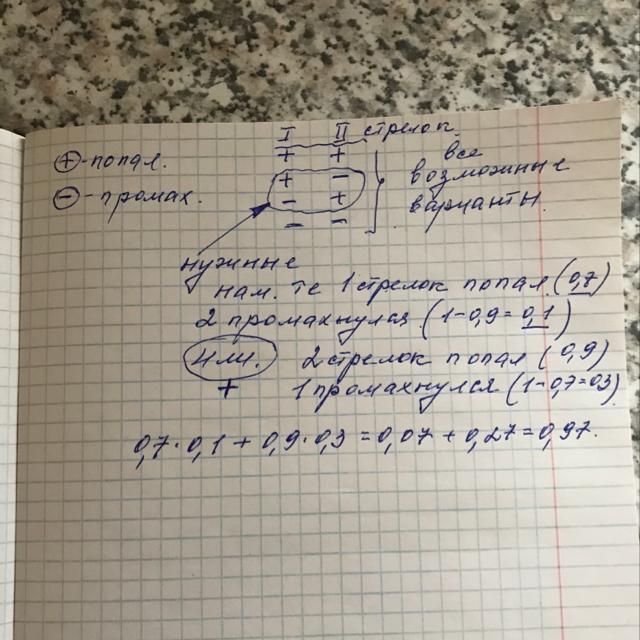 I II стрелок.
⊕-попал. + +
⊖-промах. + -
- +
- -
все возможные варианты.
нужные
нам. те 1 стрелок попал (0,7)
2 промахнулся (1-0,9=0,1)
или. 2 стрелок попал (0,9)
+ 1 промахнулся (1-0,7=0,3)
0,7·0,1+0,9·0,3=0,07+0,27=0,97.